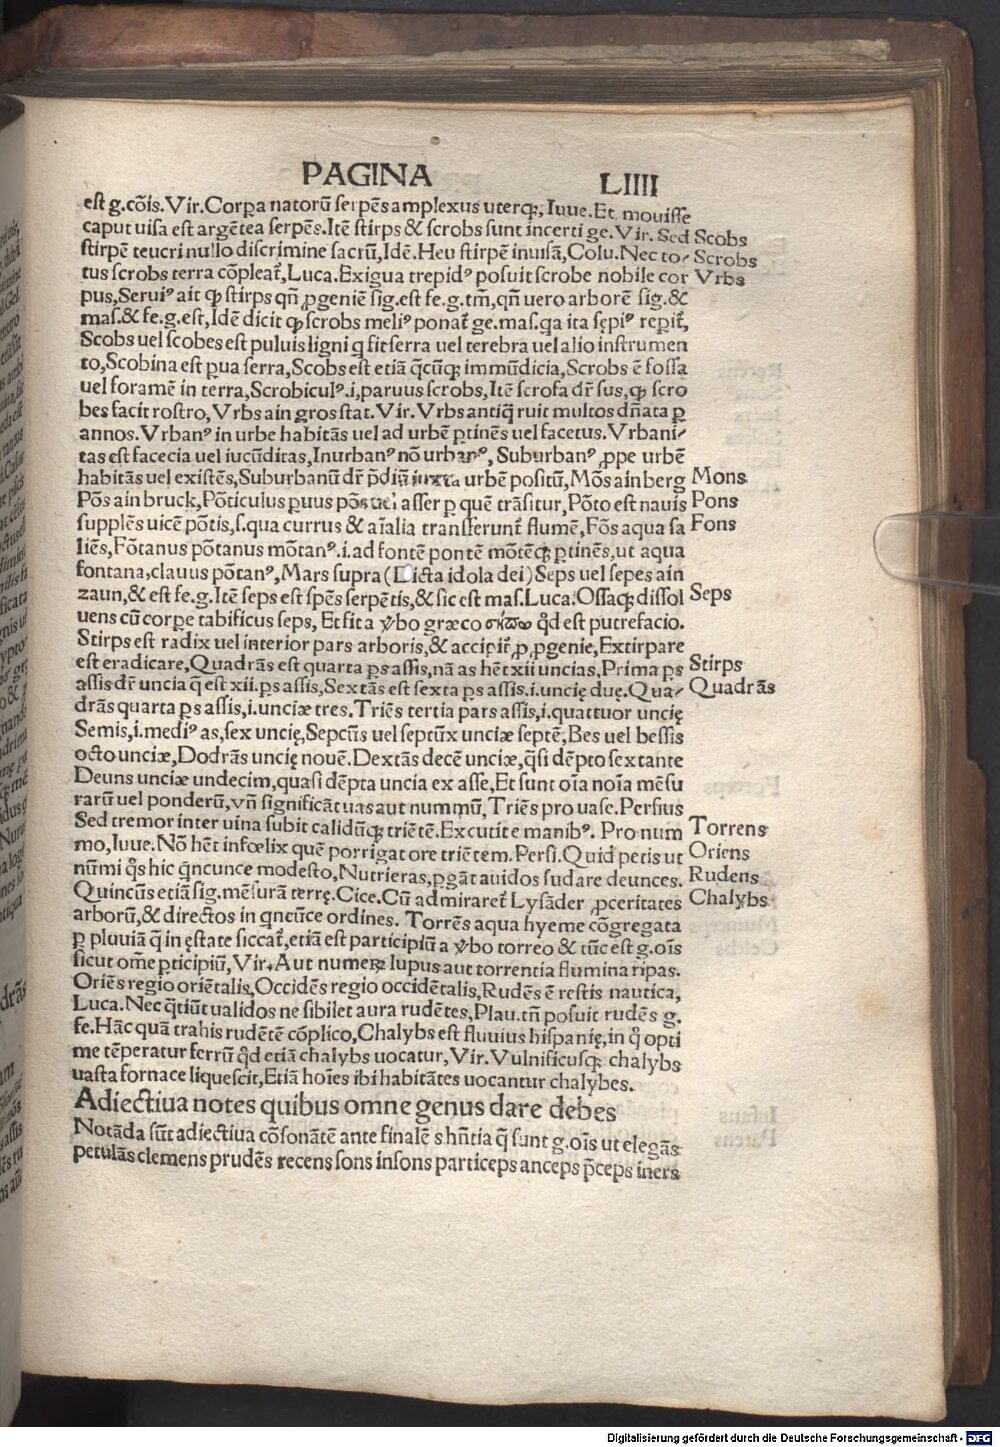 PAGINA LIIII
est g.cõis.Vir.Corpa natorũ serpẽs amplexus uterqꝫ, Iuue.Et mouisse
caput uisa est argẽtea serpẽs.Itẽ stirps & scrobs sunt incerti ge.Vir.Sed Scobs
stirpẽ teucri nullo discrimine sacrũ,Idẽ.Heu stirpẽ inuisã,Colu.Nec to⸗ Scrobs
tus scrobs terra cõpleat᷑,Luca.Exigua trepidꝰ posuit scrobe nobile cor Vrbs
pus,Seruiꝰ ait ꝙ stirps qñ ꝓgeniẽ sig.est fe.g.tm̃,qñ uero arborẽ sig.&
mas.& fe.g.est,Idẽ dicit ꝙ scrobs meliꝰ ponat᷑ ge.mas.qa ita sępiꝰ repit᷑,
Scobs uel scobes est puluis ligni q̃ fit serra uel terebra uel alio instrumen
to,Scobina est ꝑua serra,Scobs est etiã q̃cũqꝫ immũdicia,Scrobs ẽ fossa
uel foramẽ in terra,Scrobiculꝰ.i,paruus scrobs,Itẽ scrofa dr̃ sus,ꝙ scro
bes facit rostro,Vrbs ain gros stat.Vir.Vrbs antiq̃ ruit multos dñata ꝑ
annos.Vrbanꝰ in urbe habitãs uel ad urbẽ ꝑtinẽs uel facetus.Vrbani⸗
tas est facecia uel iucũditas,Inurbanꝰ nõ urbanꝰ, Suburbanꝰ ꝓpe urbẽ
habitãs uel existẽs,Suburbanũ dr̃ p̃diũ iuxta urbẽ positũ,Mõs ain berg Mons
Põs ain bruck,Põticulus ꝑuus põs uel asser ꝑ quẽ trãsitur,Põto est nauis Pons
supplẽs uicẽ põtis,s.qua currus & aĩalia transferunt᷑ flumẽ,Fõs aqua sa Fons
liẽs,Fõtanus põtanus mõtanꝰ.i.ad fontẽ pontẽ mõtẽqꝫ ꝑtinẽs,ut aqua
fontana,clauus põtanꝰ,Mars supra(Dicta idola dei)Seps uel sepes ain
zaun,& est fe.g.Itẽ seps est sp̃es serpẽtis,& sic est mas.Luca.Ossaqꝫ dissol Seps
uens cũ corpe tabificus seps, Et fit a ỽbo græco σήπω q̃d est putrefacio.
Stirps est radix uel interior pars arboris,& accipit᷑,ꝓ,ꝓgenie,Extirpare
est eradicare,Quadrãs est quarta ꝑs assis,nã as hẽt xii uncias,Prima ꝑs Stirps
assis dr̃ uncia q̃ est xii.ꝑs assis,Sextãs est sexta ꝑs assis.i.uncię due.Qua⸗ Quadrãs
drãs quarta ꝑs assis,i.unciæ tres.Triẽs tertia pars assis,i.quattuor uncię
Semis,i.mediꝰ as,sex uncię,Sepcũs uel septũx unciæ septẽ,Bes uel bessis
octo unciæ,Dodrãs uncię nouẽ.Dextãs decẽ unciæ,q̃si dẽpto sextante
Deuns unciæ undecim,quasi dẽpta uncia ex asse,Et sunt oĩa noĩa mẽsu
rarũ uel ponderũ,vñ significãt uas aut nummũ,Triẽs pro uase.Persius
Sed tremor inter uina subit calidũqꝫ triẽtẽ.Excutit e manibꝰ. Pro num Torrens
mo,Iuue.Nõ hẽt infœlix quẽ porrigat ore triẽtem.Persi.Quid petis ut Oriens
nũmi q̃s hic q̃ncunce modesto,Nutrieras,ꝑgãt auidos sudare deunces. Rudens
Quincũs etiã sig.mẽsurã terrę.Cice.Cũ admiraret᷑ Lysãder ꝓceritates Chalybs
arborũ,& directos in q̃ncũce ordines. Torrẽs aqua hyeme cõgregata
ꝑ pluuiã q̃ in ęstate siccat᷑,etiã est participiũ a ỽbo torreo & tũc est g.oĩs
sicut om̃e ꝑticipiũ,Vir.Aut numerꝫ lupus aut torrentia flumina ripas.
Oriẽs regio oriẽtalis,Occidẽs regio occidẽtalis,Rudẽs ẽ restis nautica,
Luca.Nec q̃tiũt ualidos ne sibilet aura rudẽtes,Plau.tñ posuit rudẽs g.
fe.Hãc quã trahis rudẽtẽ cõplico,Chalybs est fluuius hispanię,in q̃ opti
me tẽperatur ferrũ q̃d etiã chalybs uocatur,Vir.Vulnificusqꝫ chalybs
uasta fornace liquescit,Etiã hoĩes ibi habitãtes uocantur chalybes.
Adiectiua notes quibus omne genus dare debes
Notãda sũt adiectiua cõsonãtẽ ante finalẽ s.hñtia q̃ sunt g.oĩs ut elegãs
petulãs clemens prudẽs recens sons insons particeps anceps p̃ceps iners
Digitalisierung gefördert durch die Deutsche Forschungsgemeinschaft - DFG